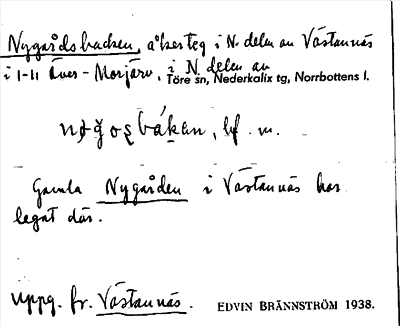 Nygårdsbacken, åkerteg i N. delen av Västannäs
i 1-11 Över-Morjärv, i N. delen av
Töre sn, Nederkalix tg, Norrbottens l.
bf. m.
Gamla Nygården i Västannäs har
legat där.
Uppg. fr. Västannäs. EDVIN BRÄNNSTRÖM 1938.